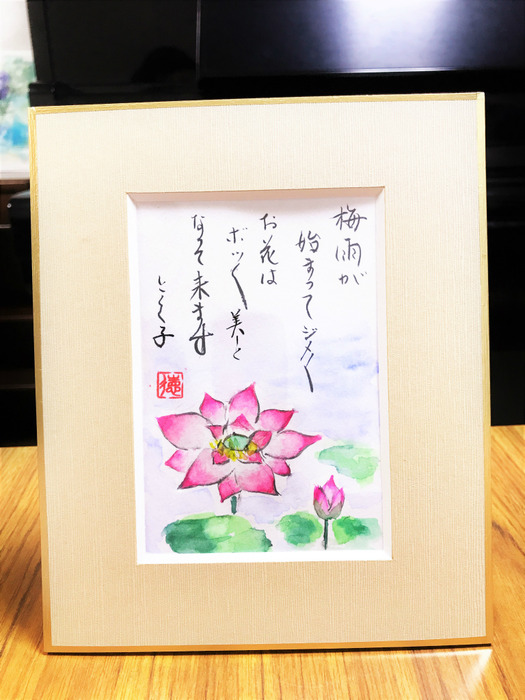 梅雨が
始まってジメ〱
お花は
ボツ〱美しく
なって来ます
とく子
德